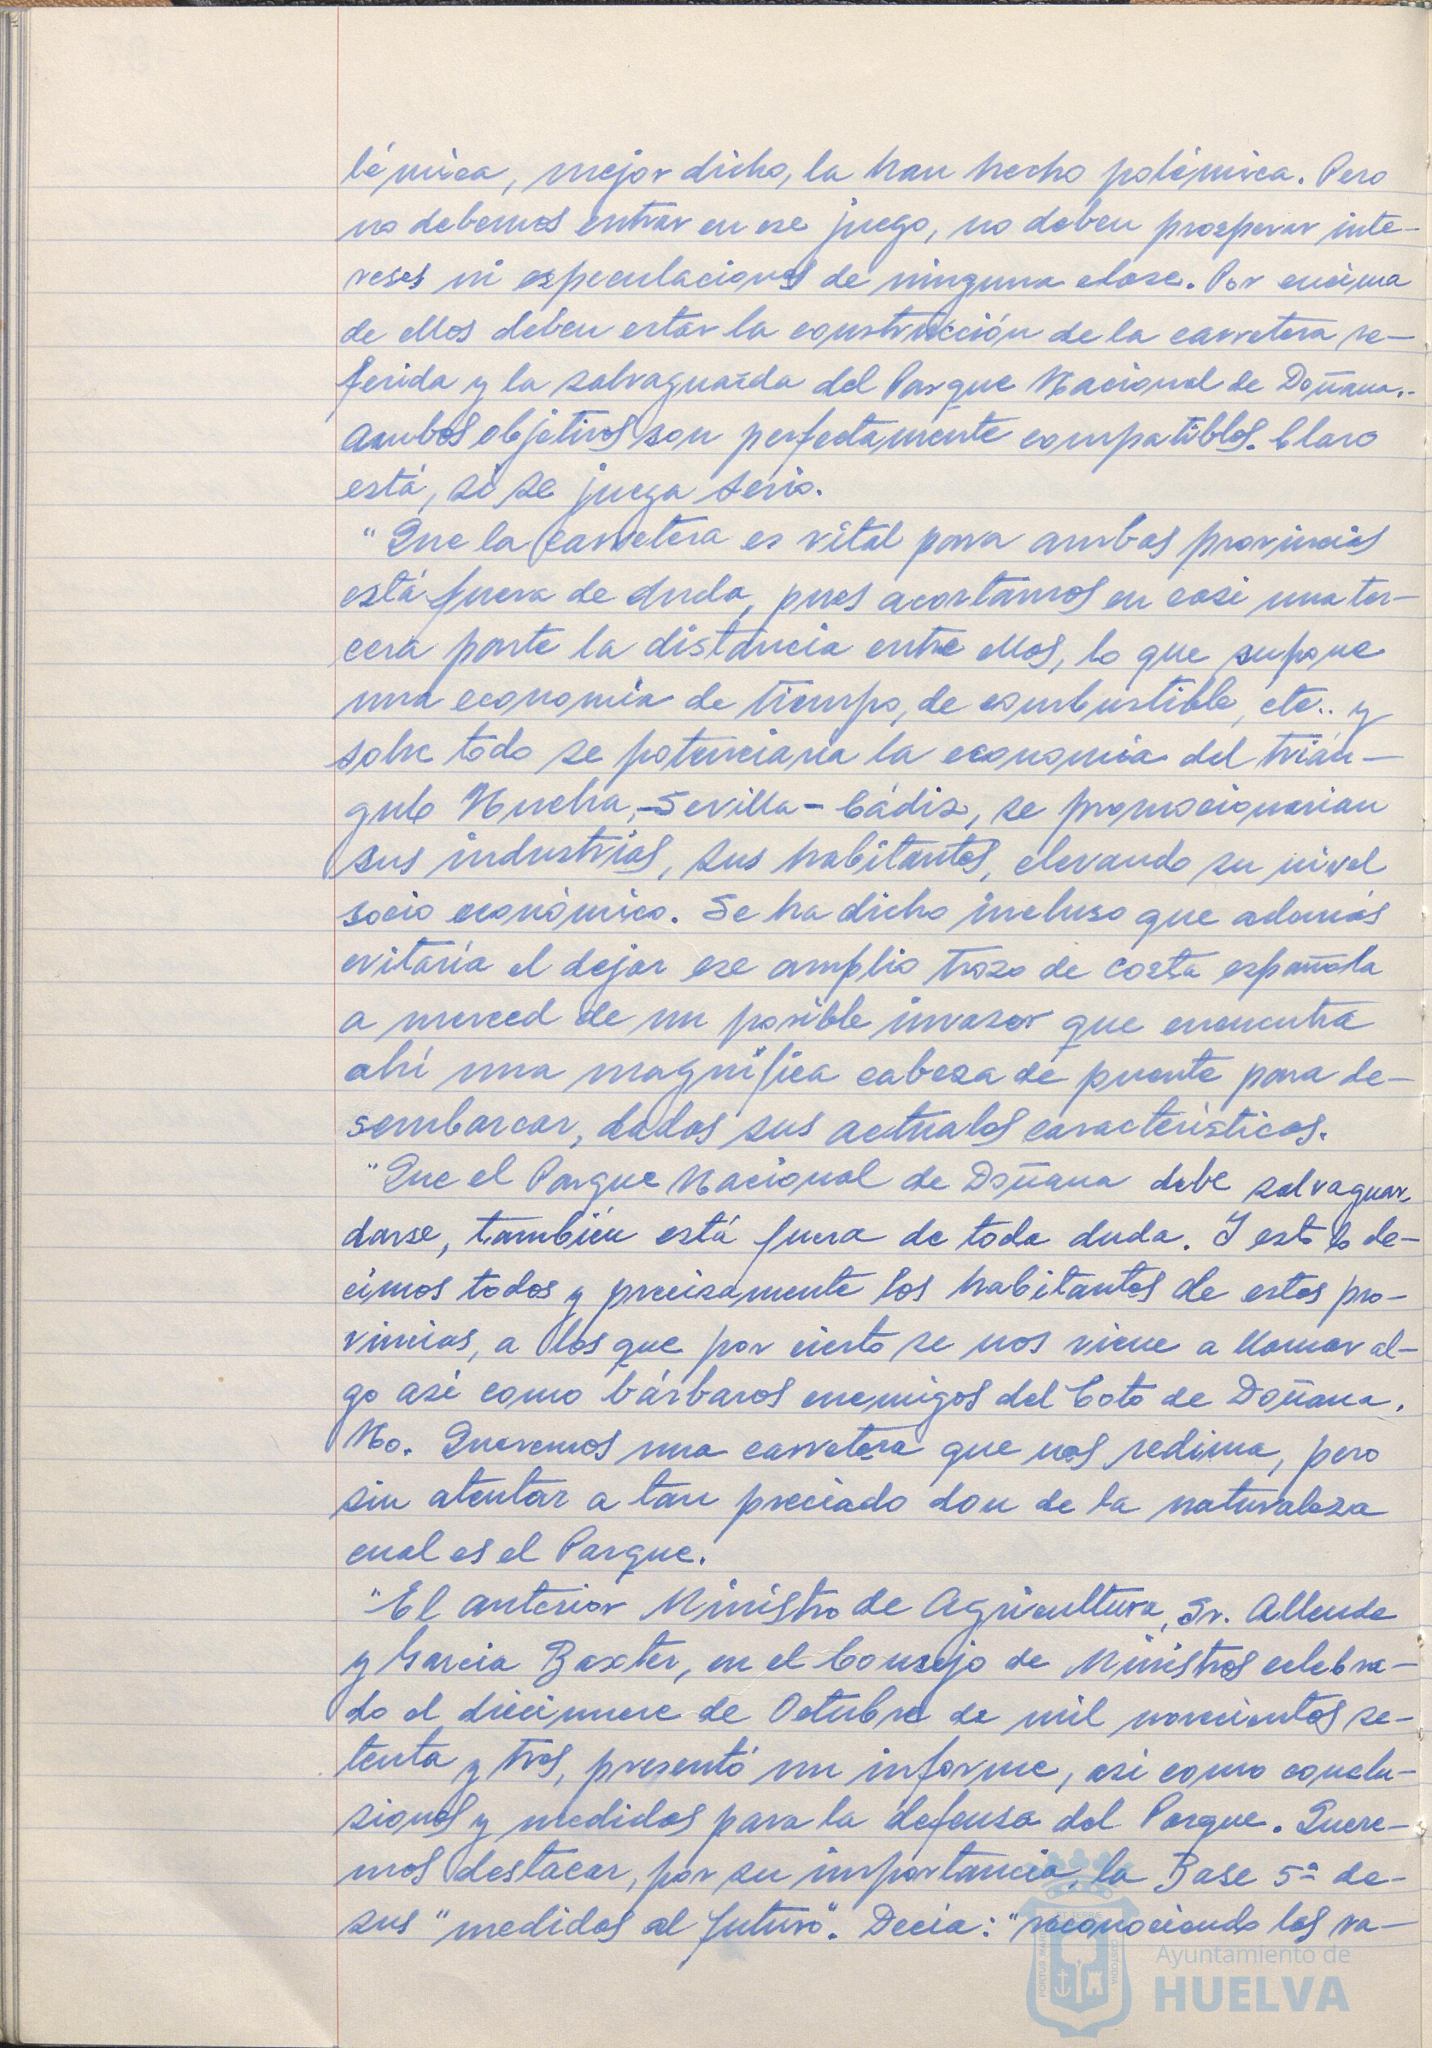 lémica, mejor dicho, la han hecho polémica. Pero
no debemos entrar en ese juego, no deben prosperar inte-
reses ni especulaciones de ninguna clase. Por encima
de ellos deben estar la construcción de la carretera re-
ferida y la salvaguarda del Parque Nacional de Doñana..
Ambos objetivos son perfectamente compatibles. Claro
está, si se juega serio.
"Que la carretera es vital para ambas provincias
está fuera de duda, pues acortamos en casi una ter-
cera parte la distancia entre ellas, lo que supone
una economía de tiempo, de combustible, etc.. y
sobre todo se potenciaria la economía del trián-
gulo Huelva,-Sevilla-Cádiz, se promocionarian
sus industrias, sus habitantes, elevando su nivel
socio económico. Se ha dicho incluso que además
evitaría el dejar ese amplio trozo de costa española
a merced de un posible invasor que encuentra
ahí una magnífica cabeza de puente para de-
sembarcar, dadas sus actuales características.
"Que el Parque Nacional de Doñana debe salvaguar-
darse, también está fuera de toda duda. Y esto lo de-
cimos todos y precisamente los habitantes de estas pro-
vincias, a los que por cierto se nos viene a llamar al-
go asi como bárbaros enemigos del Coto de Doñana.
No. Queremos una carretera que nos redima, pero
sin atentar a tan preciado don de la naturaleza
cual es el Parque.
"El anterior Ministro de Agricultura, Sr. Allende
y Garcia Baxter, en el Consejo de Ministros celebra-
do el diecinueve de Octubre de mil novecientos se-
tenta y tres, presentó un informe, asi como conclu-
siones y medidas para la defensa del Parque. Quere-
mos destacar, por su importancia, la Base 5ª de-
sus "medidas al futuro". Decia: "reconociendo las ra-
PORTUS MARIS ET TERRAE CUSTODIA
Ayuntamiento de
HUELVA